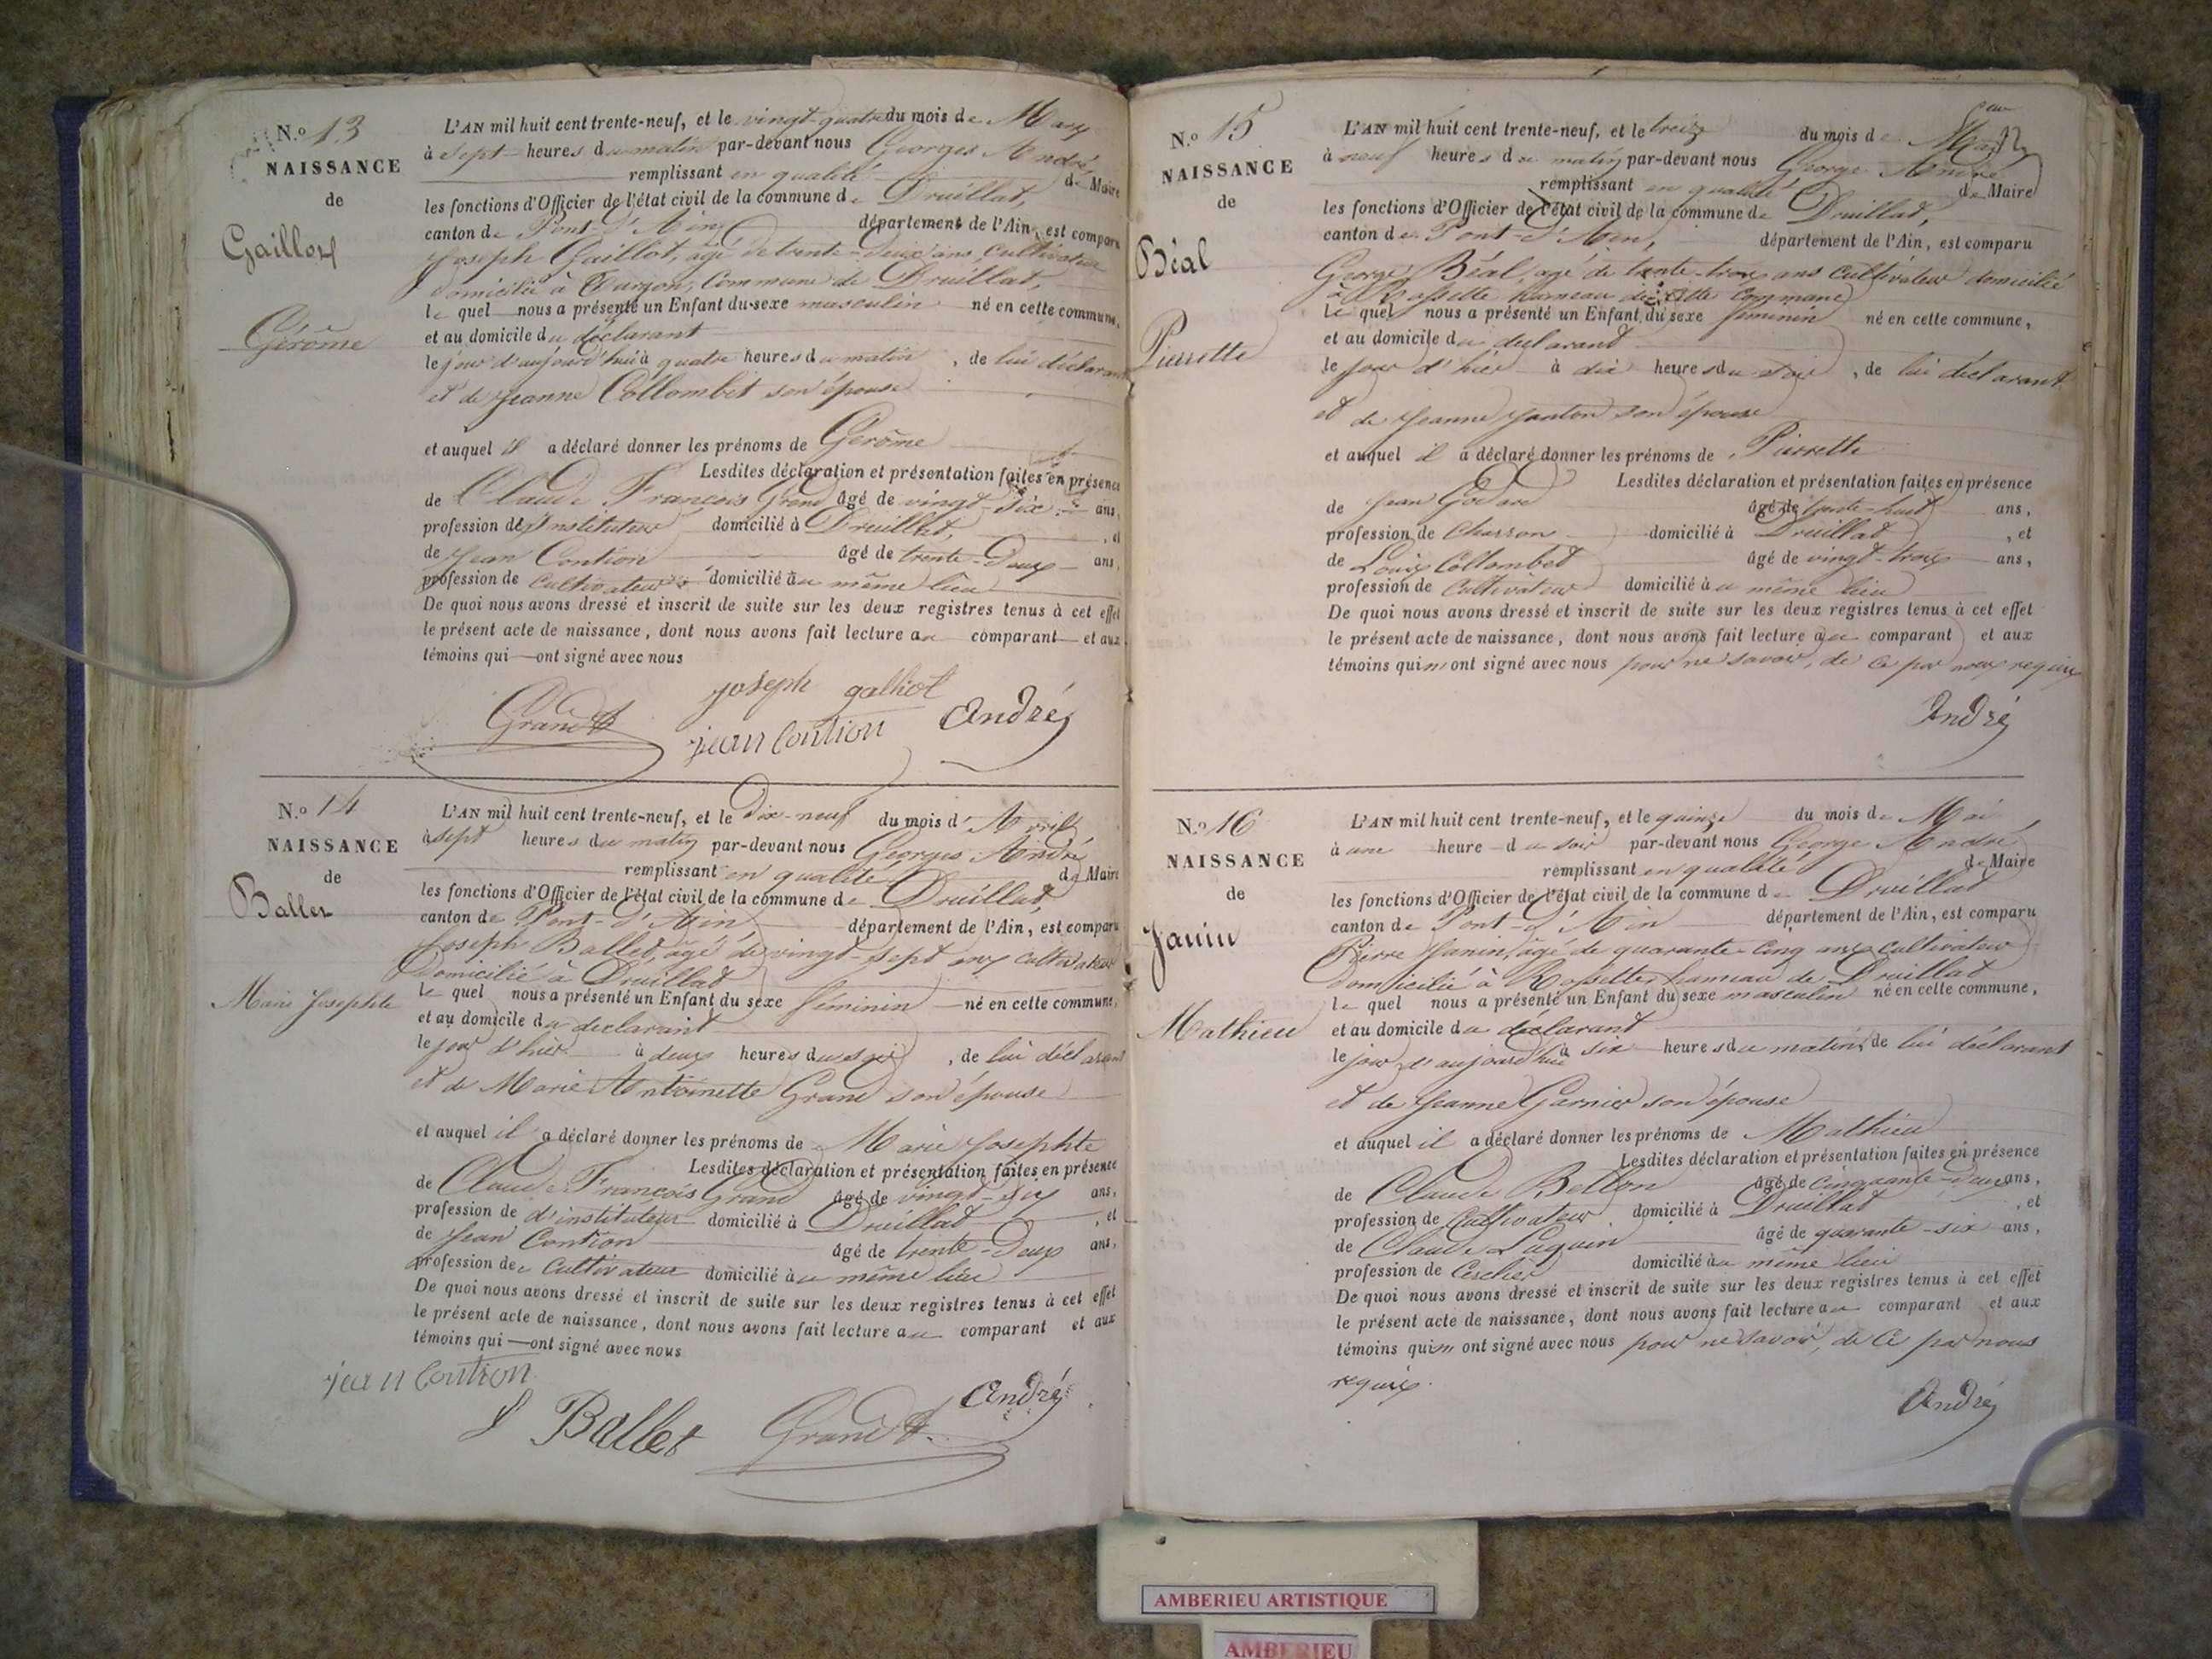 N.o 13
NAISSANCE
de
Gaillot
Gérôme
L'AN mil huit cent trente-neuf, et le vingt-quatre du mois de Mars
à sept heures du matin par-devant nous Georges André
remplissant en qualité de Maire
les fonctions d'Officier de l'état civil de la commune de Druillat,
canton de Pont-d'Ain, département de l'Ain, est comparu
Joseph Gaillot, agé de trente-deux ans, cultivateur
domicilié à Turgon, Commune de Druillat,
le quel nous a présenté un Enfant du sexe masculin né en cette commune,
et au domicile du déclarant
le jour d'aujourd'hui à quatre heures du matin, de lui déclarant
et de Jeanne Collombet son épouse
et auquel il a déclaré donner les prénoms de Gérôme
Lesdites déclaration et présentation faites en présence
de Claude François Grand âgé de vingt-six ans,
profession de Instituteur domicilié à Druillat, , et
de Jean Contion âgé de trente-Deux ans,
profession de cultivateur domicilié au même lieu
De quoi nous avons dressé et inscrit de suite sur les deux registres tenus à cet effet
le présent acte de naissance, dont nous avons fait lecture au comparant et aux
témoins qui ont signé avec nous
joseph galliot
Grand
jean Contion
André
N.o 14
NAISSANCE
de
Ballet
Marie Josephte
L'AN mil huit cent trente-neuf, et le Dix-neuf du mois d'Avril
à sept heures du matin par-devant nous Georges André
remplissant en qualité de Maire
les fonctions d'Officier de l'état civil de la commune de Druillat,
canton de Pont-d'Ain département de l'Ain, est comparu
Joseph Ballet, âgé de vingt-sept ans cultivateur
Domicilié à Druillat
le quel nous a présenté un Enfant du sexe féminin né en cette commune,
et au domicile du declarant
le jour d'hier à deux heures du soir, de lui déclarant
et de Marie Antoinette Grand son épouse
et auquel il a déclaré donner les prénoms de Marie Josephte
Lesdites déclaration et présentation faites en présence
de Claude François Grand âgé de vingt-six ans,
profession de d'instituteur domicilié à Druillat , et
de Jean Contion âgé de trente-Deux ans,
profession de cultivateur domicilié au même lieu
De quoi nous avons dressé et inscrit de suite sur les deux registres tenus à cet effet
le présent acte de naissance, dont nous avons fait lecture au comparant et aux
témoins qui ont signé avec nous
jean Contion
André
J Ballet
Grand
N.o 15
NAISSANCE
de
Béal
Pierrette
L'AN mil huit cent trente-neuf, et le treize du mois de Mai
à neuf heures du matin par-devant nous George André
remplissant en qualité de Maire
les fonctions d'Officier de l'état civil de la commune de Druillat,
canton de Pont-d'Ain, département de l'Ain, est comparu
George Béal, agé de trente-trois ans Cultivateur domicilié
à Rossette hameau de cette commune
le quel nous a présenté un Enfant du sexe féminin né en cette commune,
et au domicile du declarant
le jour d'hier à dix heures du soir, de lui déclarant
et de Jeanne Janton son épouse
et auquel il a déclaré donner les prénoms de Pierrette
Lesdites déclaration et présentation faites en présence
de Jean Godard âgé de trente-huit ans,
profession de Charron domicilié à Druillat , et
de Louis Collombet âgé de vingt-trois ans,
profession de Cultivateur domicilié au même lieu
De quoi nous avons dressé et inscrit de suite sur les deux registres tenus à cet effet
le présent acte de naissance, dont nous avons fait lecture au comparant et aux
témoins qui n'ont signé avec nous pour ne savoir, de ce par nous requis
André
N.o 16
NAISSANCE
de
Janin
Mathieu
L'AN mil huit cent trente-neuf, et le quinze du mois de Mai
à une heure du soir par-devant nous George André
remplissant en qualité de Maire
les fonctions d'Officier de l'état civil de la commune de Druillat
canton de Pont-d'Ain département de l'Ain, est comparu
Pierre Janin, âgé de quarante-cinq ans cultivateur
domicilié à Rossette, hameau de Druillat
le quel nous a présenté un Enfant du sexe masculin né en cette commune,
et au domicile du déclarant
le jour d'aujourd'hui à six heures du matin, de lui déclarant
et de Jeanne Garnier son épouse
et auquel il a déclaré donner les prénoms de Mathieu
Lesdites déclaration et présentation faites en présence
de Claude Bollon âgé de Cinquante-Deux ans,
profession de Cultivateur domicilié à Druillat , et
de Claude Luguin âgé de quarante-six ans,
profession de domicilié au même lieu
De quoi nous avons dressé et inscrit de suite sur les deux registres tenus à cet effet
le présent acte de naissance, dont nous avons fait lecture au comparant et aux
témoins qui n'ont signé avec nous pour ne savoir, de ce par nous
requis.
André
AMBERIEU ARTISTIQUE
AMBERIEU